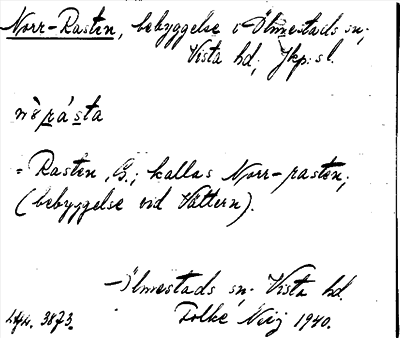 Norr-Rasten, bebyggelse i Ölmestads sn;
Vista hd; Jkp:sl.
nò̀rrásta
= Rasten, G.; kallas Norr-rasten;
(bebyggelse vid Vättern).
Ölmestads sn. Vista hd.
3873. Folke 1940.